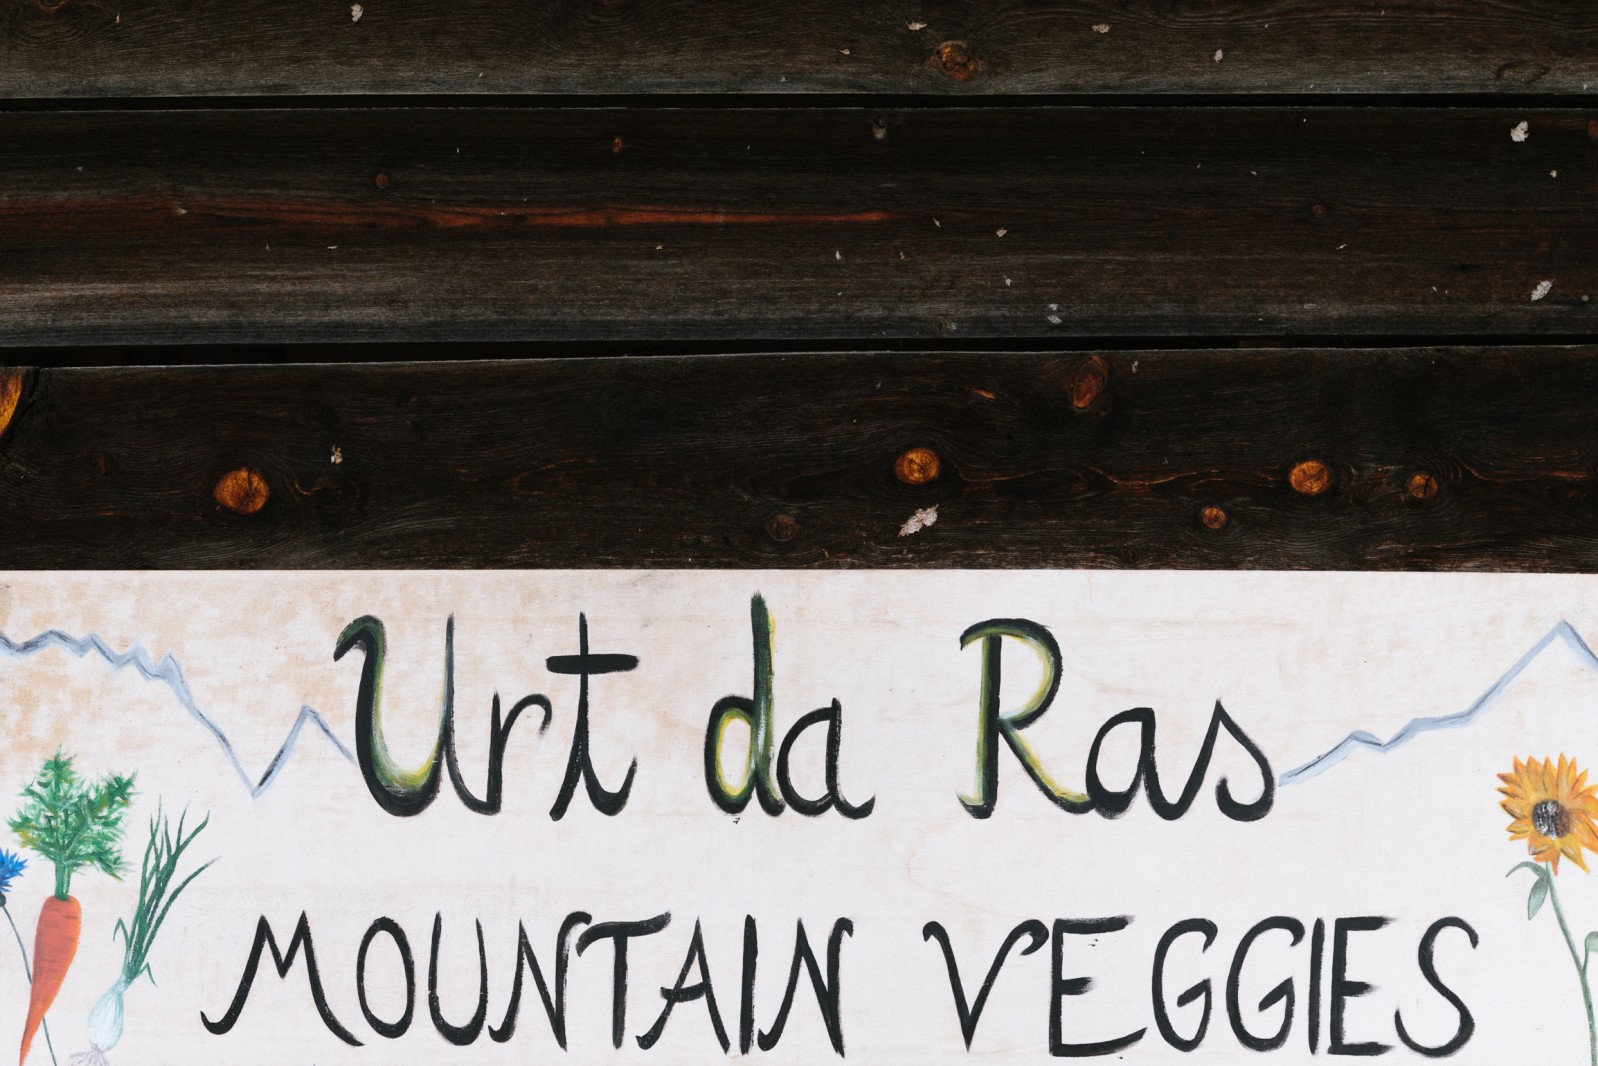 Urt da Ras
MOUNTAIN VEGGIES